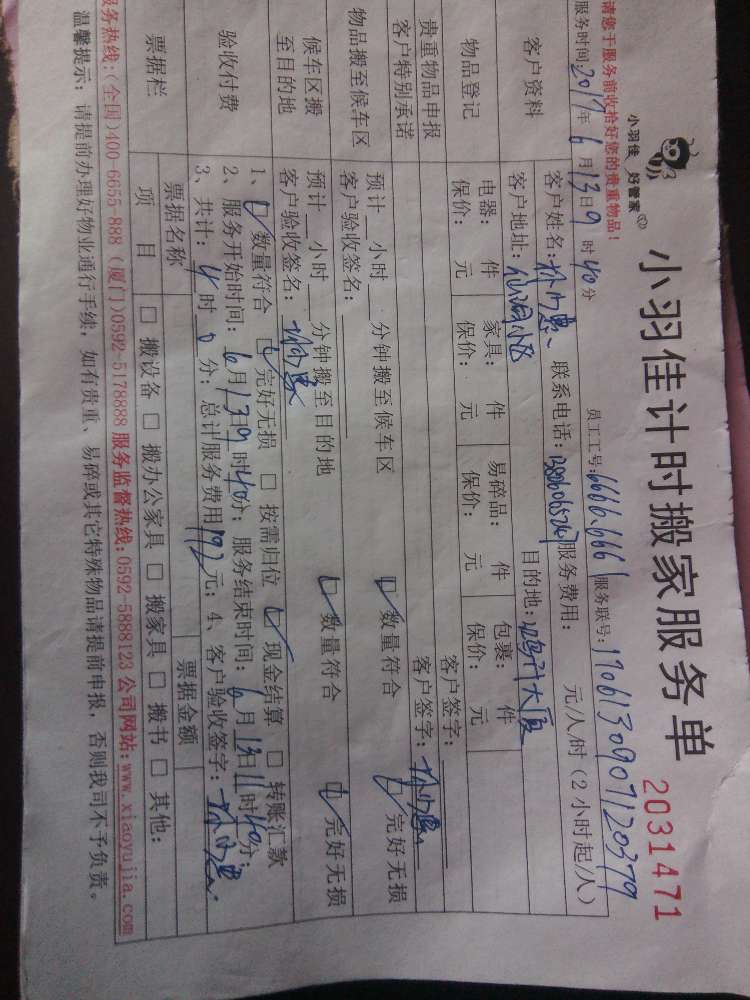 小羽佳 好管家
小羽佳计时搬家服务单
2031471
请您于服务前收拾好您的贵重物品！
服务时间: 2017年6月13日9时40分 员工工号: 6666.666 服务联号: 1706130907120379
客户资料
客户姓名: 联系电话: 服务费用: 元/人/时 (2小时起/人)
客户地址: 目的地: 大厦
物品登记
电器: 件 家具: 件 易碎品: 件 包裹: 件
保价: 元 保价: 元 保价: 元 保价: 元
贵重物品申报 客户签字:
客户特别承诺 客户签字:
物品搬至候车区
预计 小时 分钟搬至候车区 数量符合 完好无损
客户验收签名:
候车区搬至目的地
预计 小时 分钟搬至目的地 数量符合 完好无损
客户验收签名:
验收付费
1、 数量符合 完好无损 按需归位 现金结算 转账汇款
2、服务开始时间: 6月13日9时40分; 服务结束时间: 6月13日11时40分;
3、共计: 4时0分; 总计服务费用192元; 4、客户验收签字:
票据栏
票据名称 票据金额
项目 搬设备 搬办公家具 搬家具 搬书 其他:
服务热线:(全国)400-6655-888 (厦门)0592-5178888 服务监督热线:0592-5888123 公司网站:www.xiaoyujia.com
温馨提示: 请提前办理好物业通行手续, 如有贵重、易碎或其它特殊物品请提前申报, 否则我司不予负责。